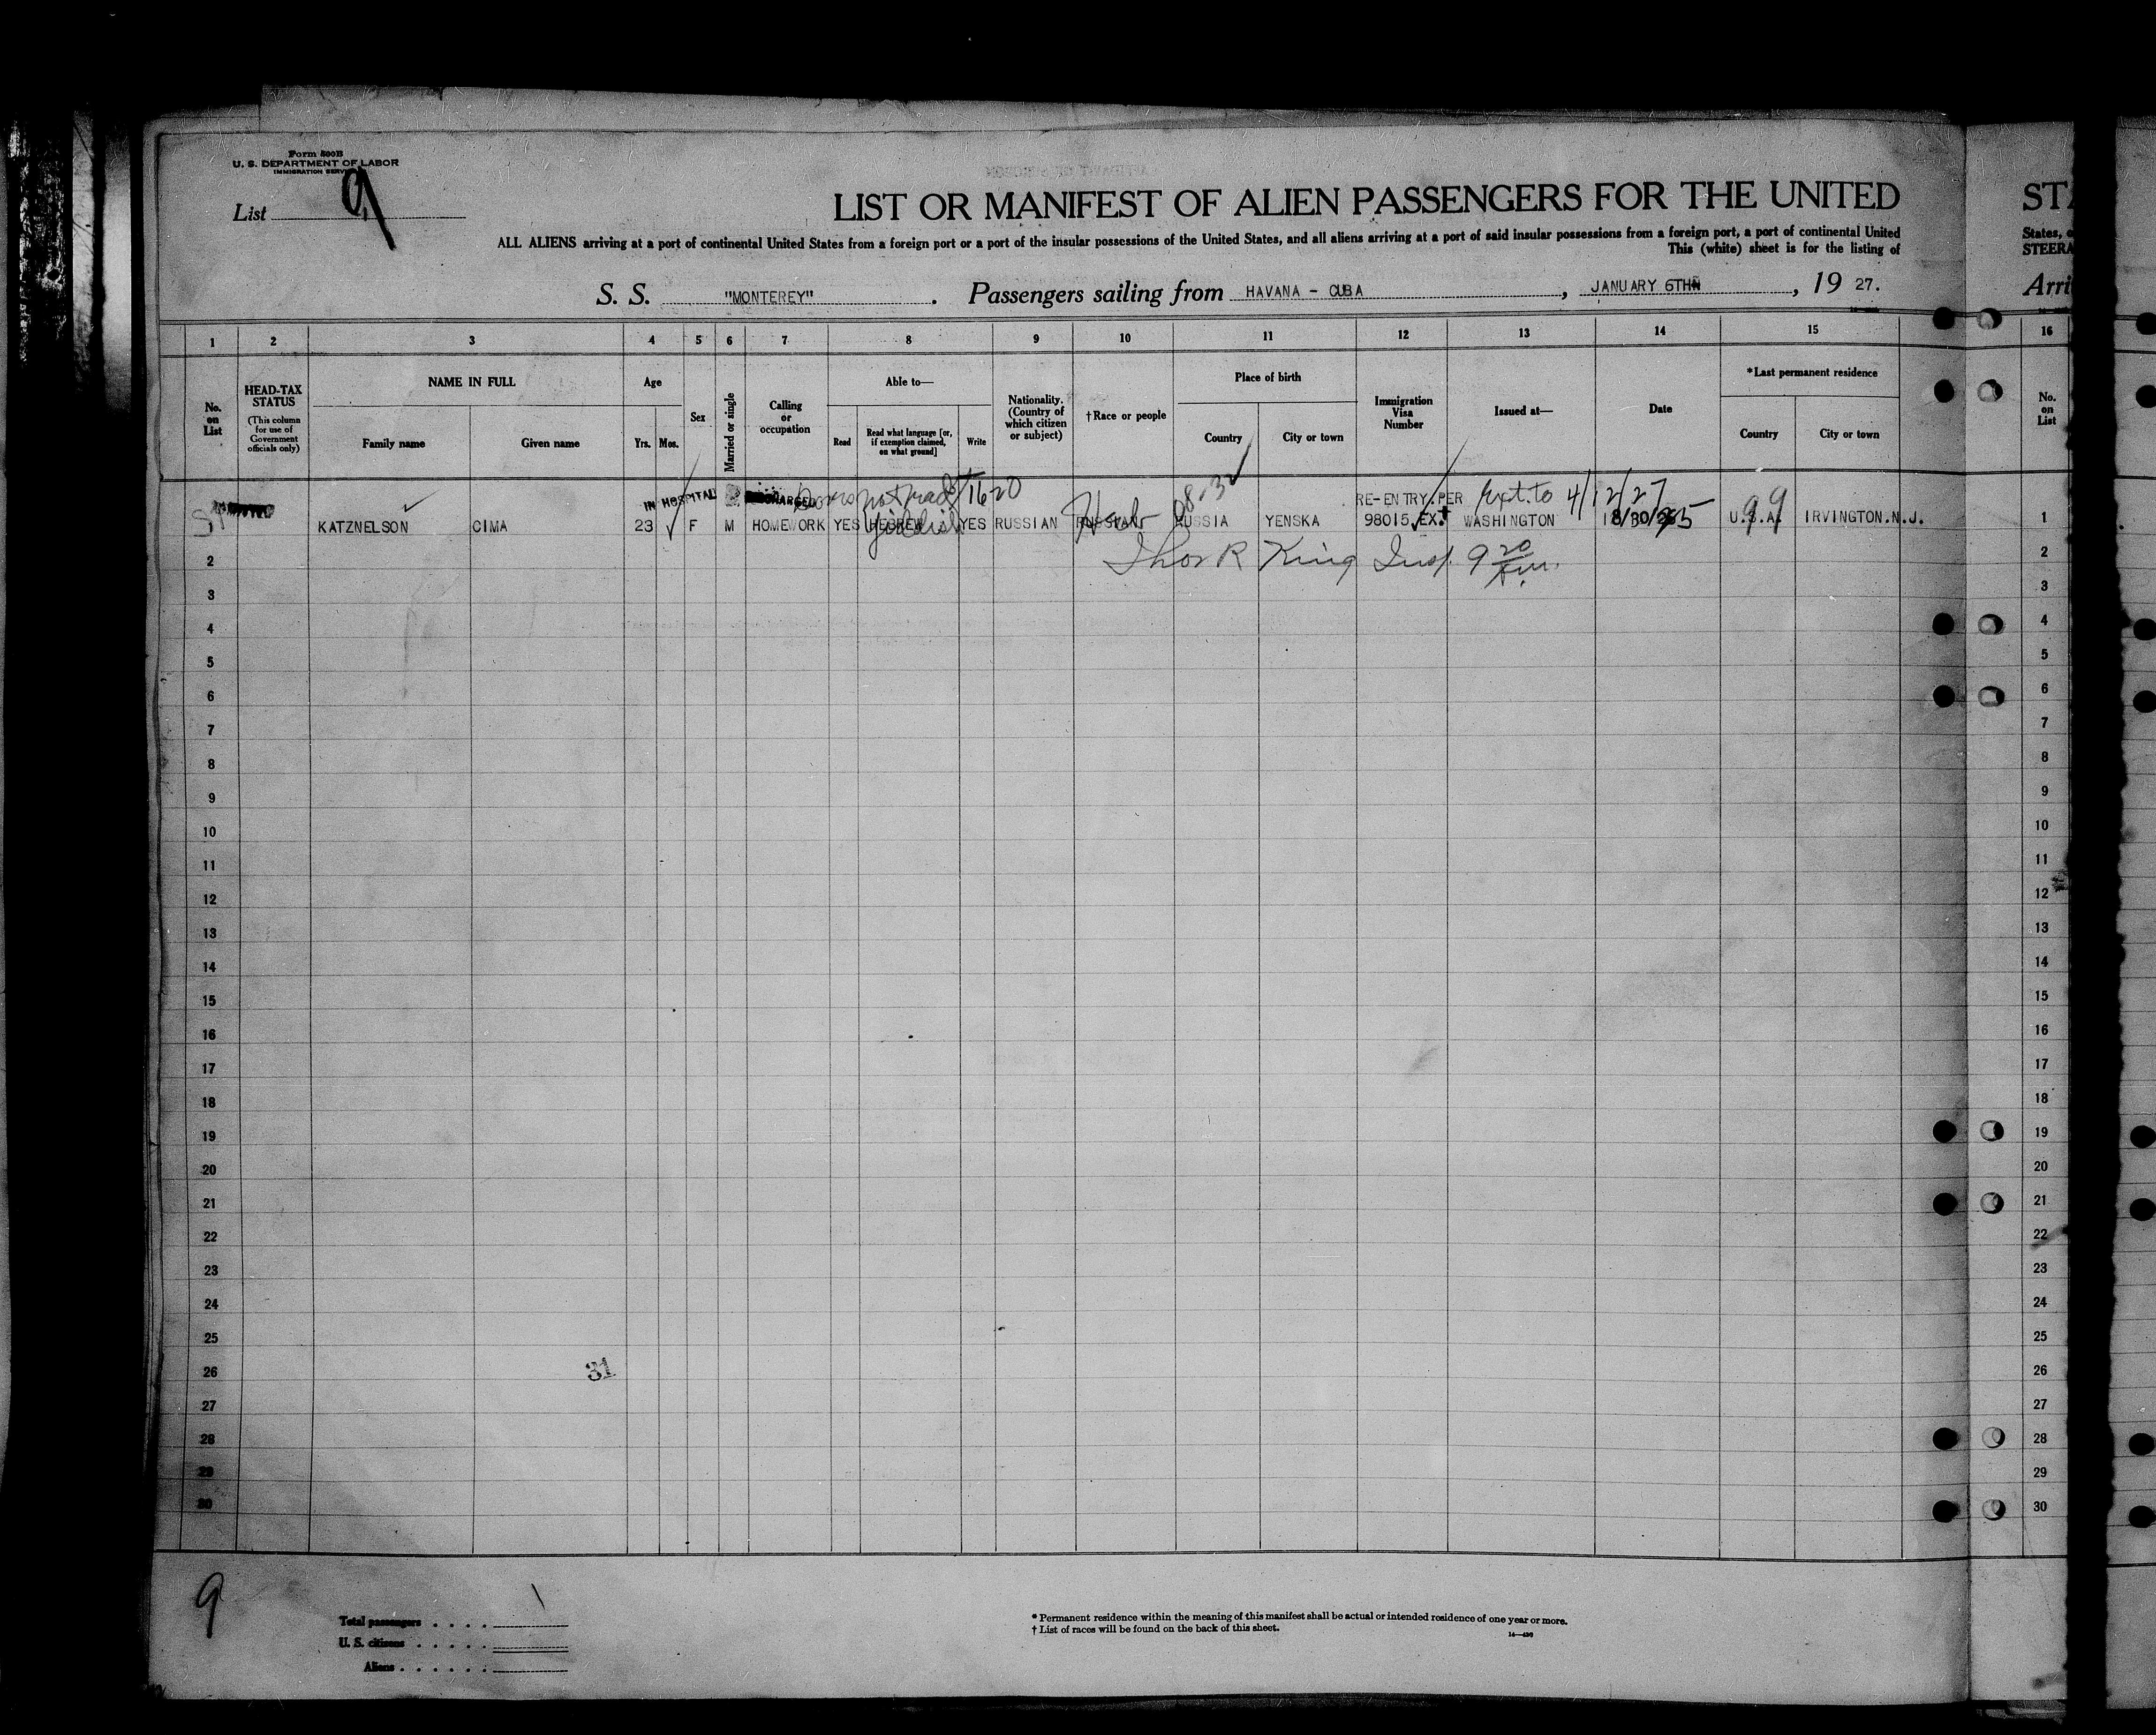 Form 500B
U. S. DEPARTMENT OF LABOR
IMMIGRATION SERVICE
List 9
LIST OR MANIFEST OF ALIEN PASSENGERS FOR THE UNITED
ALL ALIENS arriving at a port of continental United States from a foreign port or a port of the insular possessions of the United States, and all aliens arriving at a port of said insular possessions from a foreign port, a port of continental United
This (white) sheet is for the listing of
STA
States, o
STEERA
S. S. "MONTEREY" . Passengers sailing from HAVANA - CUBA , JANUARY 6TH , 19 27.
Arri
1 2 3 4 5 6 7 8 9 10 11 12 13 14 15 16
No. on List
HEAD-TAX STATUS
(This column for use of Government officials only)
NAME IN FULL
Family name Given name
Age
Yrs. Mos.
Sex
Married or single
Calling or occupation
Able to—
Read
Read what language [or, if exemption claimed, on what ground]
Write
Nationality. (Country of which citizen or subject)
†Race or people
Place of birth
Country City or town
Immigration Visa Number
Issued at—
Date
*Last permanent residence
Country City or town
No. on List
IN HOSPITAL DISCHARGED RE-ENTRY.PER Ext. to 4/12/27
1 KATZNELSON CIMA 23 F M HOMEWORK YES HEBREW Yiddish YES RUSSIAN Heb RUSSIA YENSKA 98015.EX. WASHINGTON U.S.A. 99 IRVINGTON.N.J. 1
King Insp. 9 20
2 2
3 3
4 4
5 5
6 6
7 7
8 8
9 9
10 10
11 11
12 12
13 13
14 14
15 15
16 16
17 17
18 18
19 19
20 20
21 21
22 22
23 23
24 24
25 25
26 26
31
27 27
28 28
29 29
30 30
9
Total passengers . . . .
U. S. citizens . . . . .
Aliens . . . . . .
* Permanent residence within the meaning of this manifest shall be actual or intended residence of one year or more.
† List of races will be found on the back of this sheet.